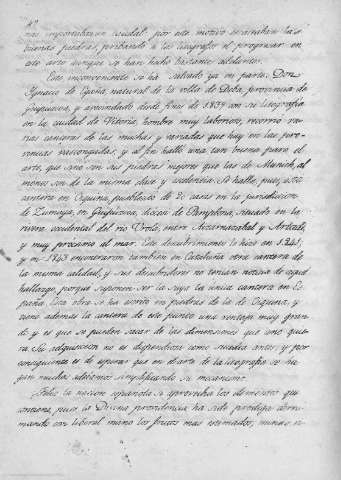 por este motivo escaseaban las
buenas piedras, privando a los litógrafos el progresar en
este arte aunque se han hecho bastante adelantos.
Este inconveniente se ha salvado ya en parte. Don
Ignacio de Egaña natural de la villa de Deba, provincia de
Guipuzcoa, y avecindado desde fines de 1837 con su litografia
en la ciudad de Vitoria, hombre muy laborioso, recorrio va-
rias canteras de las muchas y variadas que hay en las pro-
vincias vascongadas; y al fin halló una tan buena para el
arte, que sino son sus piedras mejores que las de Munich, al
menos son de la misma clase y escelencia. Se halla, pues, esta
cantera en Oiquina, pueblecito de casas en la jurisdiccion
de Zumaya, en Guipuzcoa, diócesi de Pamplona, situado en la
rivera occidental del rio Urola, entre Aizarnazabal y
y muy procsimo al mar. Este descubrimiento lo hizo en
y en 1843 encontraron tambien en Cataluña otra cantera de
la misma calidad, y sus descubridores no tenian noticia de aquel
hallazgo, porque suponen ser la suya la única cantera en Es-
paña. Esta obra se ha escrito en piedras de la de Oiquina, y
tiene ademas la cantera de este punto una ventaja muy gran-
de y es que se pueden sacar de las dimensiones que uno quie-
ra. Su adquisicion no es dispendiosa como sucedia antes; y por
consiguiente es de esperar que en el arte de la litografia se ha-
gan muchos adelantos simplificando su mecanismo.
¡Feliz la nacion española si aprovecha los elementos que
contiene, pues la Divina providencia ha sido prodiga derra-
mando con liberal mano los frutos mas estimados, minas, ri-